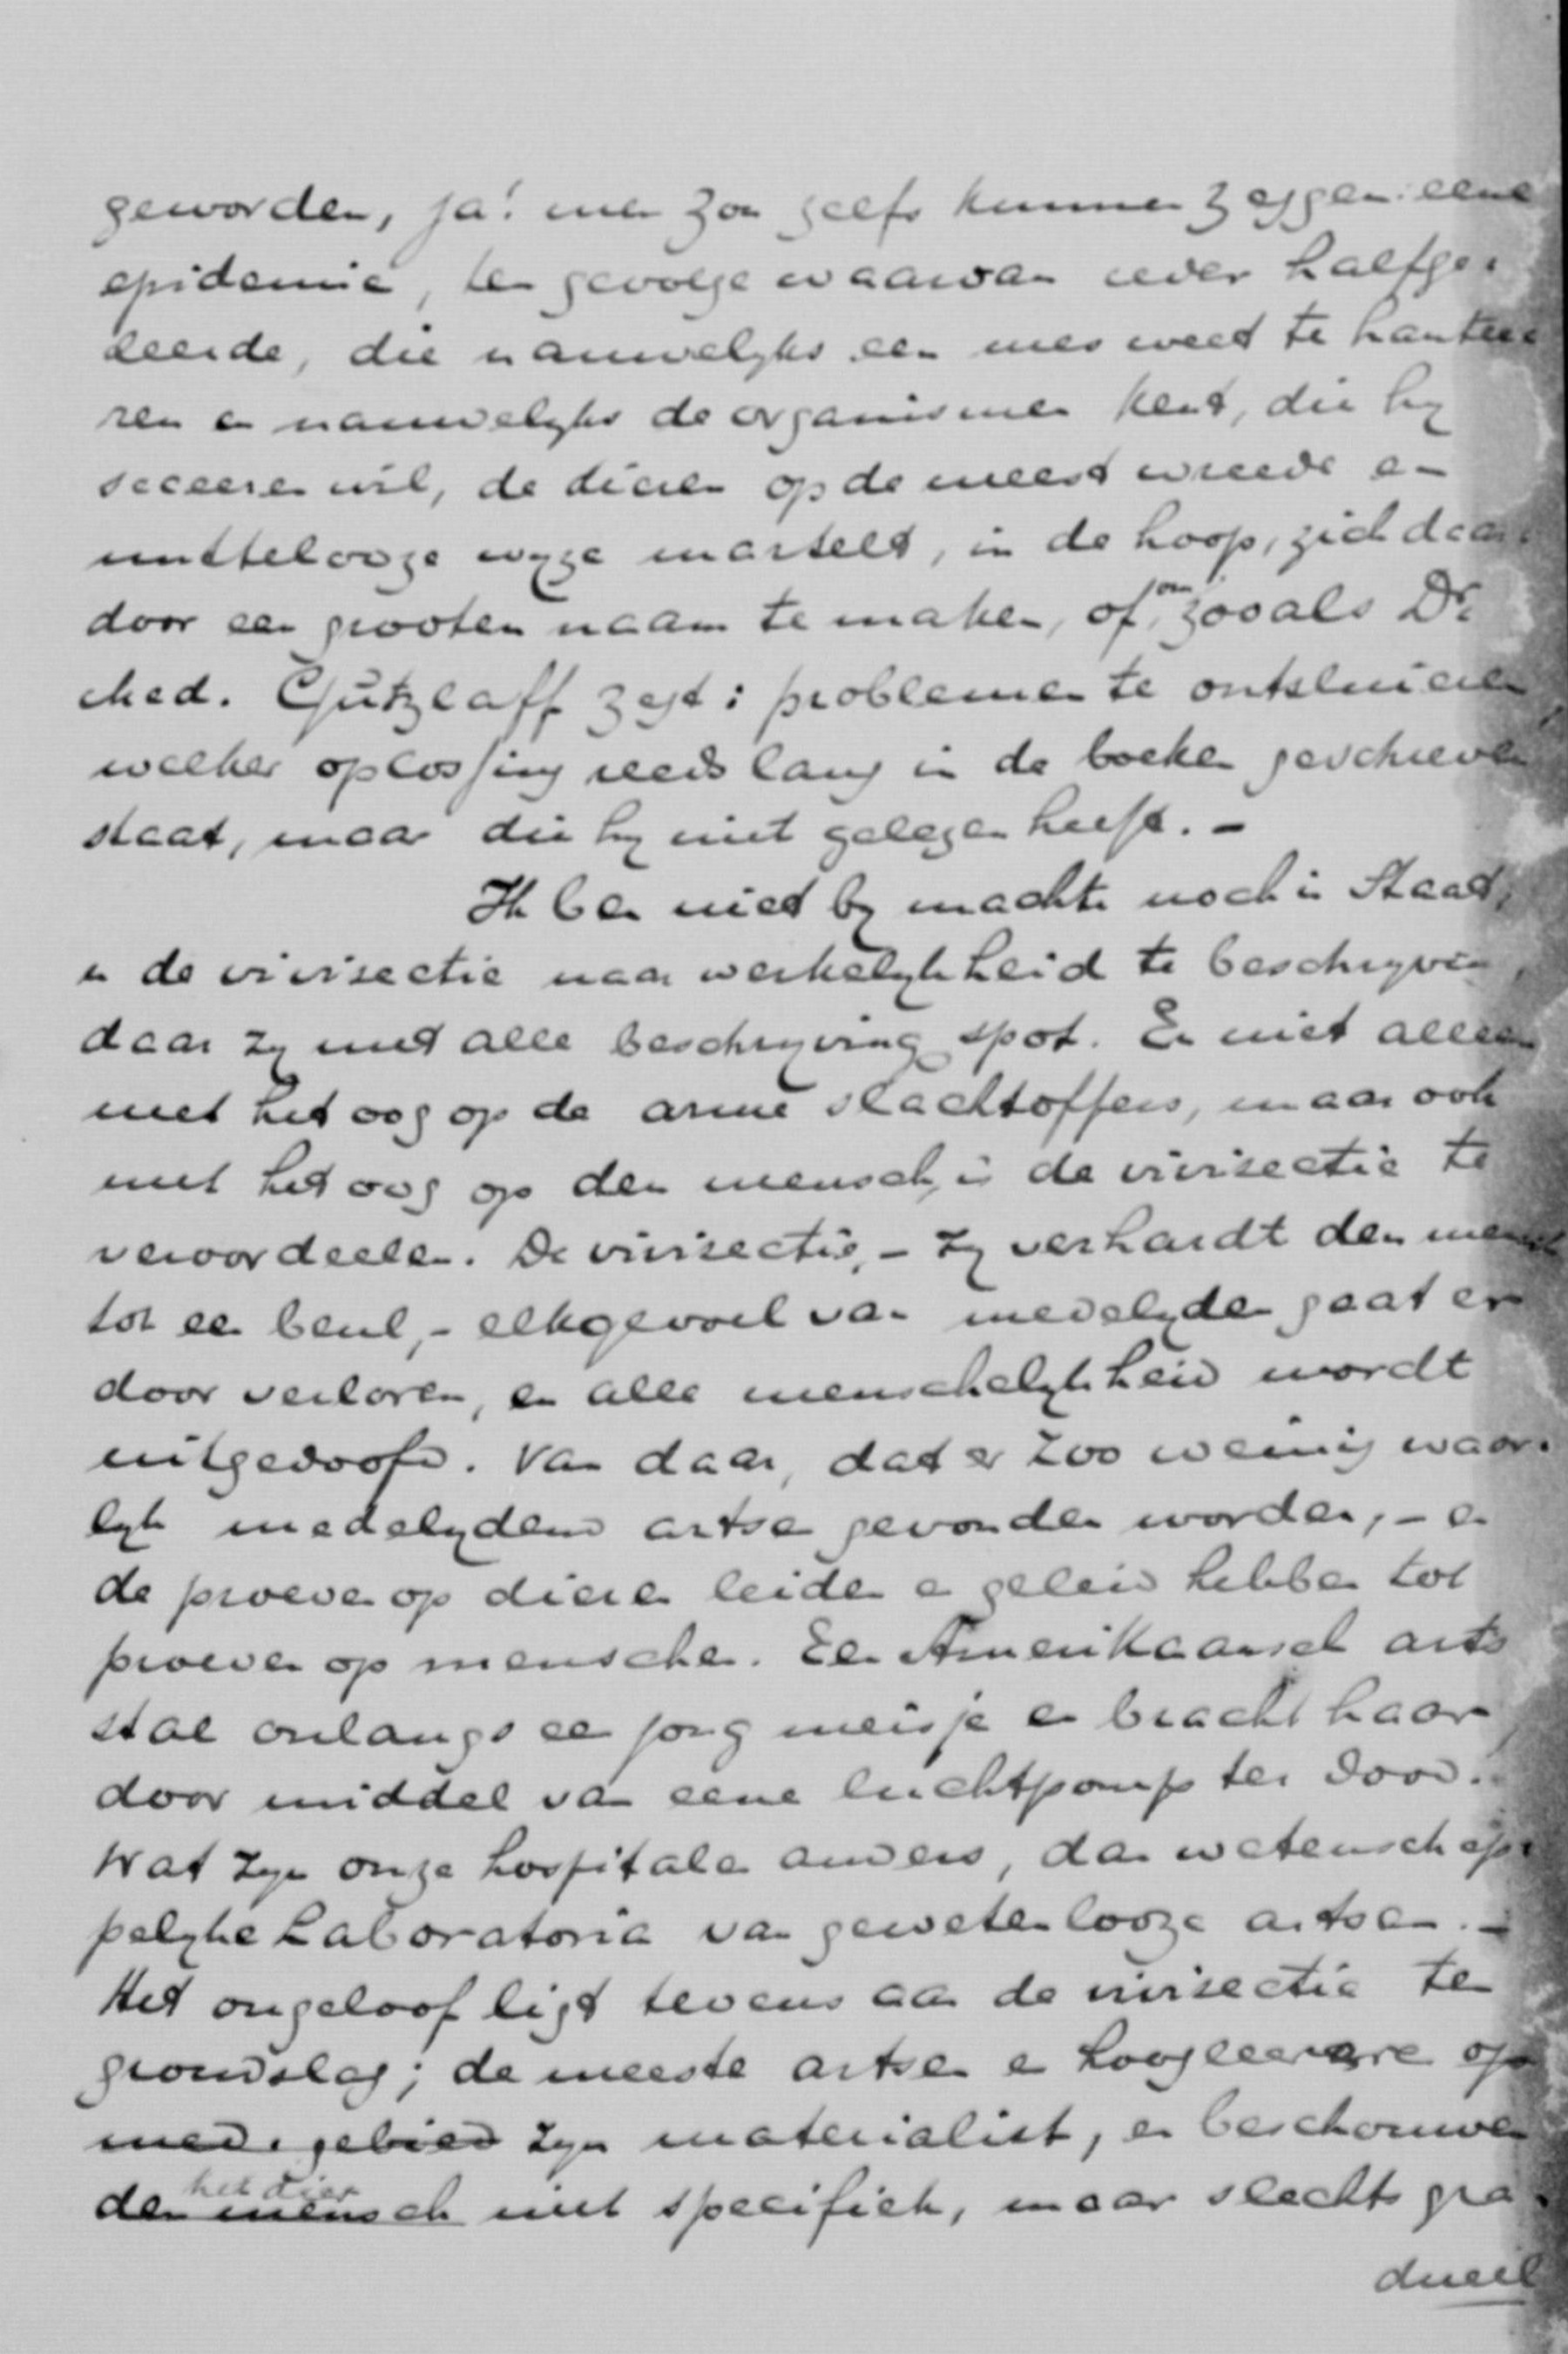 geworden, ja! men zou zelfs kunnen zeggen: eene
epidemie, ten gevolge waarvan ieder halfge-
leerde, die nauwelyks een mes weet te hantee-
ren en nauwelyks de organismen kent, die hy
seceeren wil, de dieren op de meest wreede en
nuttelooze wyze martelt, in de hoop, zich daar-
door een grooten naam te maken, of, om zooals Dr.
Med. Gützlaff zegt: problemen te ontsluieren,
welker oplossing reeds lang in de boeken geschreven
staat, maar die hy niet gelezen heeft. -
Ik ben niet by machte noch in Staat,
u de vivisectie naar werkelykheid te beschryven,
daar zy met alle beschryving spot. En niet alleen
met het oog op de arme slachtoffers, maar ook
met het oog op den mensch, is de vivisectie te
veroordeelen. De vivisectie, - zy verhardt den mensch
tot een beul, - elk gevoel van medelyden gaat er
door verloren, en alle menschelykheid wordt
uitgedoofd. Van daar, dat er zoo weinig waar-
lyk medelydend artsen gevonden worden, - en
de proeven op dieren leiden en geleid hebben tot
proeven op menschen. Een Amerikaansch arts
stal onlangs een jong meisje en bracht haar
door middel van eene luchtpomp ter dood.
Wat zyn onze hospitalen anders, dan wetenschap-
pelyke Laboratoria van gewetenlooze artsen. -
Het ongeloof ligt tevens aan de vivisectie ten
grondslag; de meeste artsen en hoogleeraren op
med. gebied zyn materialist, en beschouwen
het dier
den mensch niet specifiek, maar slechts gra-
dueel